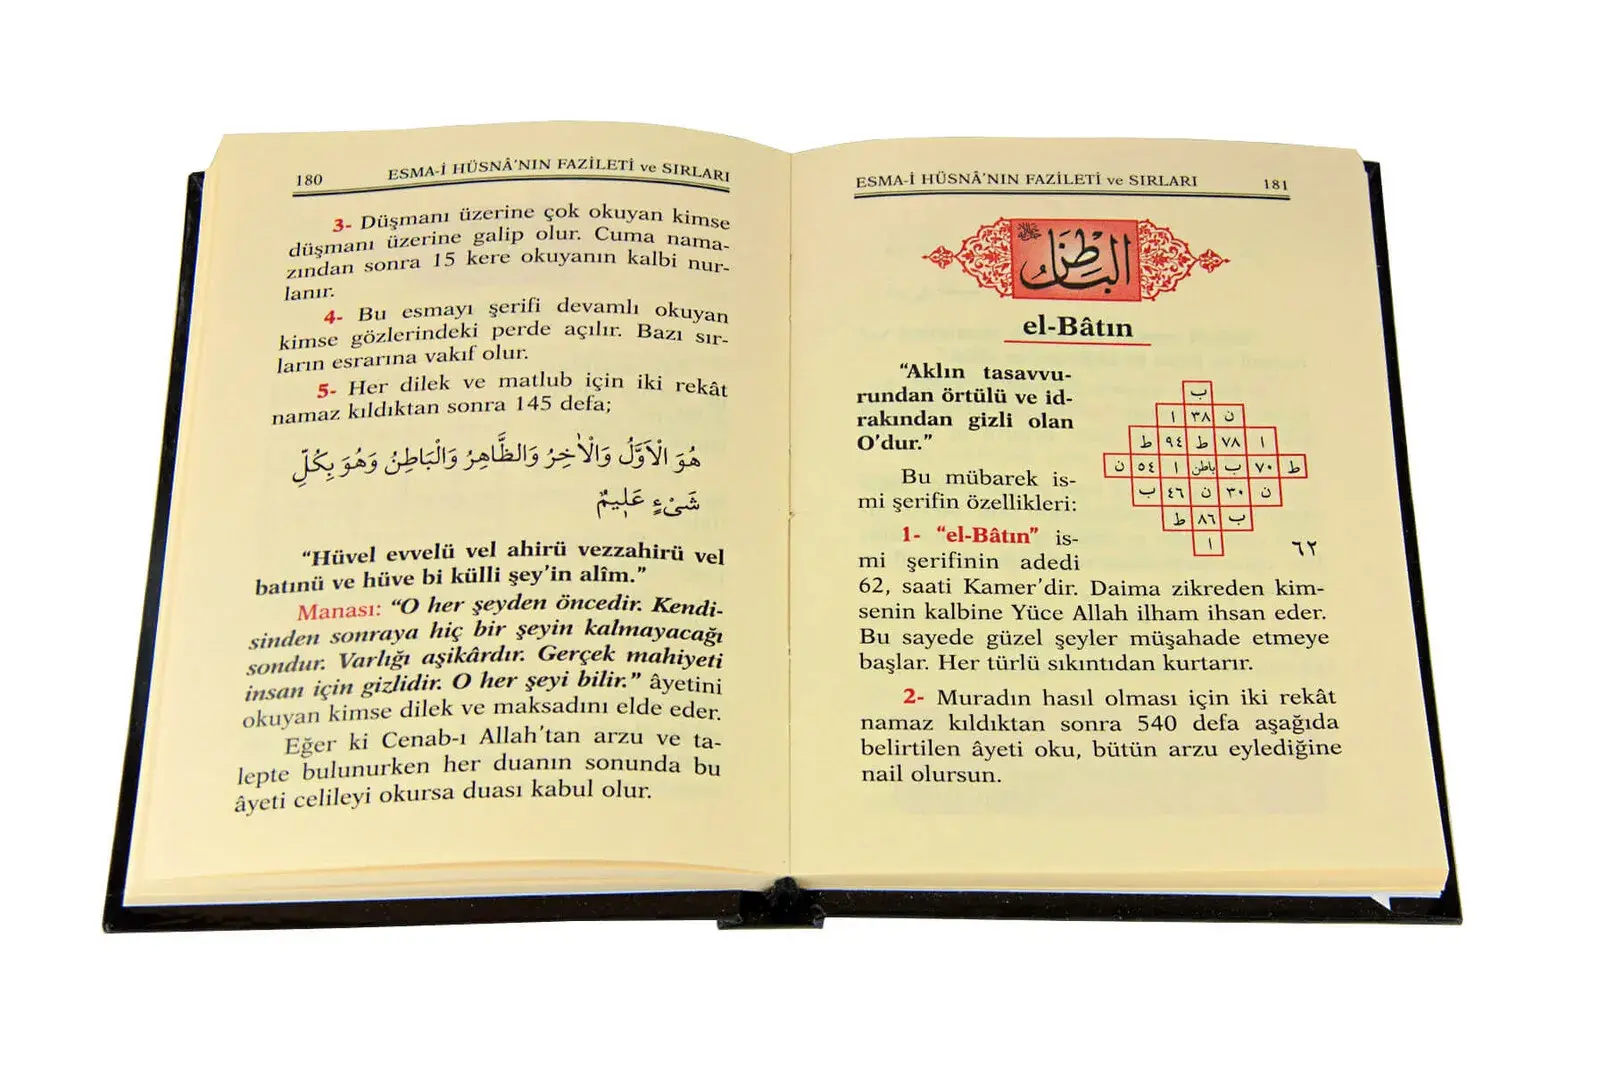 180 ESMA-İ HÜSNÂ'NIN FAZİLETİ ve SIRLARI
3- Düşmanı üzerine çok okuyan kimse
düşmanı üzerine galip olur. Cuma nama-
zından sonra 15 kere okuyanın kalbi nur-
lanır.
4- Bu esmayı şerifi devamlı okuyan
kimse gözlerindeki perde açılır. Bazı sır-
ların esrarına vakıf olur.
5- Her dilek ve matlub için iki rekât
namaz kıldıktan sonra 145 defa;
هُوَ الْاَوَّلُ وَالْاٰخِرُ وَالظَّاهِرُ وَالْبَاطِنُ وَهُوَ بِكُلِّ
شَىْءٍ عَلٖيمٌ
“Hüvel evvelü vel ahirü vezzahirü vel
batınü ve hüve bi külli şey'in alîm.”
Manası: “O her şeyden öncedir. Kendi-
sinden sonraya hiç bir şeyin kalmayacağı
sondur. Varlığı aşikârdır. Gerçek mahiyeti
insan için gizlidir. O her şeyi bilir.” âyetini
okuyan kimse dilek ve maksadını elde eder.
Eğer ki Cenab-ı Allah'tan arzu ve ta-
lepte bulunurken her duanın sonunda bu
âyeti celileyi okursa duası kabul olur.
ESMA-İ HÜSNÂ'NIN FAZİLETİ ve SIRLARI 181
الباطن
el-Bâtın
“Aklın tasavvu-
rundan örtülü ve id-
rakından gizli olan
O'dur.”
Bu mübarek is-
mi şerifin özellikleri:
ب
ا ٣٨ ن
ط ٩٤ ط ٧٨ ا
ن ٥٤ ا باطن ب ٧٠ ط
ب ٤٦ ن ٣٠ ن
ط ٨٦ ب
ا
٦٢
1- “el-Bâtın” is-
mi şerifinin adedi
62, saati Kamer'dir. Daima zikreden kim-
senin kalbine Yüce Allah ilham ihsan eder.
Bu sayede güzel şeyler müşahade etmeye
başlar. Her türlü sıkıntıdan kurtarır.
2- Muradın hasıl olması için iki rekât
namaz kıldıktan sonra 540 defa aşağıda
belirtilen âyeti oku, bütün arzu eylediğine
nail olursun.